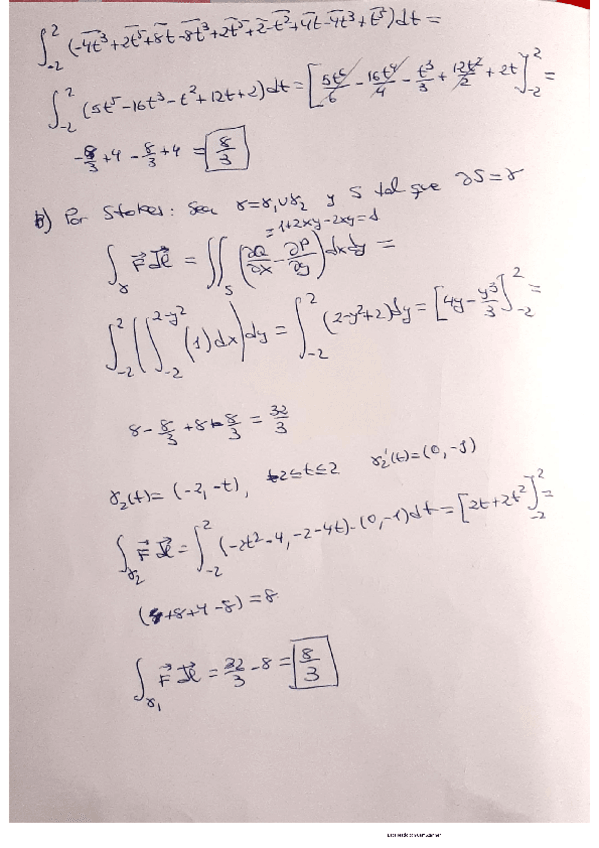 ∫_{-2}^{2} (-4t³+2t⁵+8t-8t³+2t⁵+2-t²+4t-4t³+t⁵)dt =
∫_{-2}^{2} (5t⁵-16t³-t²+12t+2)dt = [5t⁶/6 - 16t⁴/4 - t³/3 + 12t²/2 + 2t]_{-2}^{2} =
-8/3+4-8/3+4 = 8/3
b) Por Stokes: Sea γ=γ₁∪γ₂ y S tal que ∂S=γ
=1+2xy-2xy=1
∫_γ F⃗ dl⃗ = ∬_S (∂Q/∂x - ∂P/∂y) dxdy =
∫_{-2}^{2} (∫_{-2}^{2-y²} (1)dx) dy = ∫_{-2}^{2} (2-y²+2)dy = [4y - y³/3]_{-2}^{2} =
8 - 8/3 + 8 - 8/3 = 32/3
γ₂(t) = (-2, -t), -2≤t≤2 γ₂'(t)=(0, -1)
∫_{γ₂} F⃗ dl⃗ = ∫_{-2}^{2} (-2t²-4, -2-4t)·(0,-1)dt = [2t+2t²]_{-2}^{2} =
(4+8+4-8) = 8
∫_{γ₁} F⃗ dl⃗ = 32/3 - 8 = 8/3